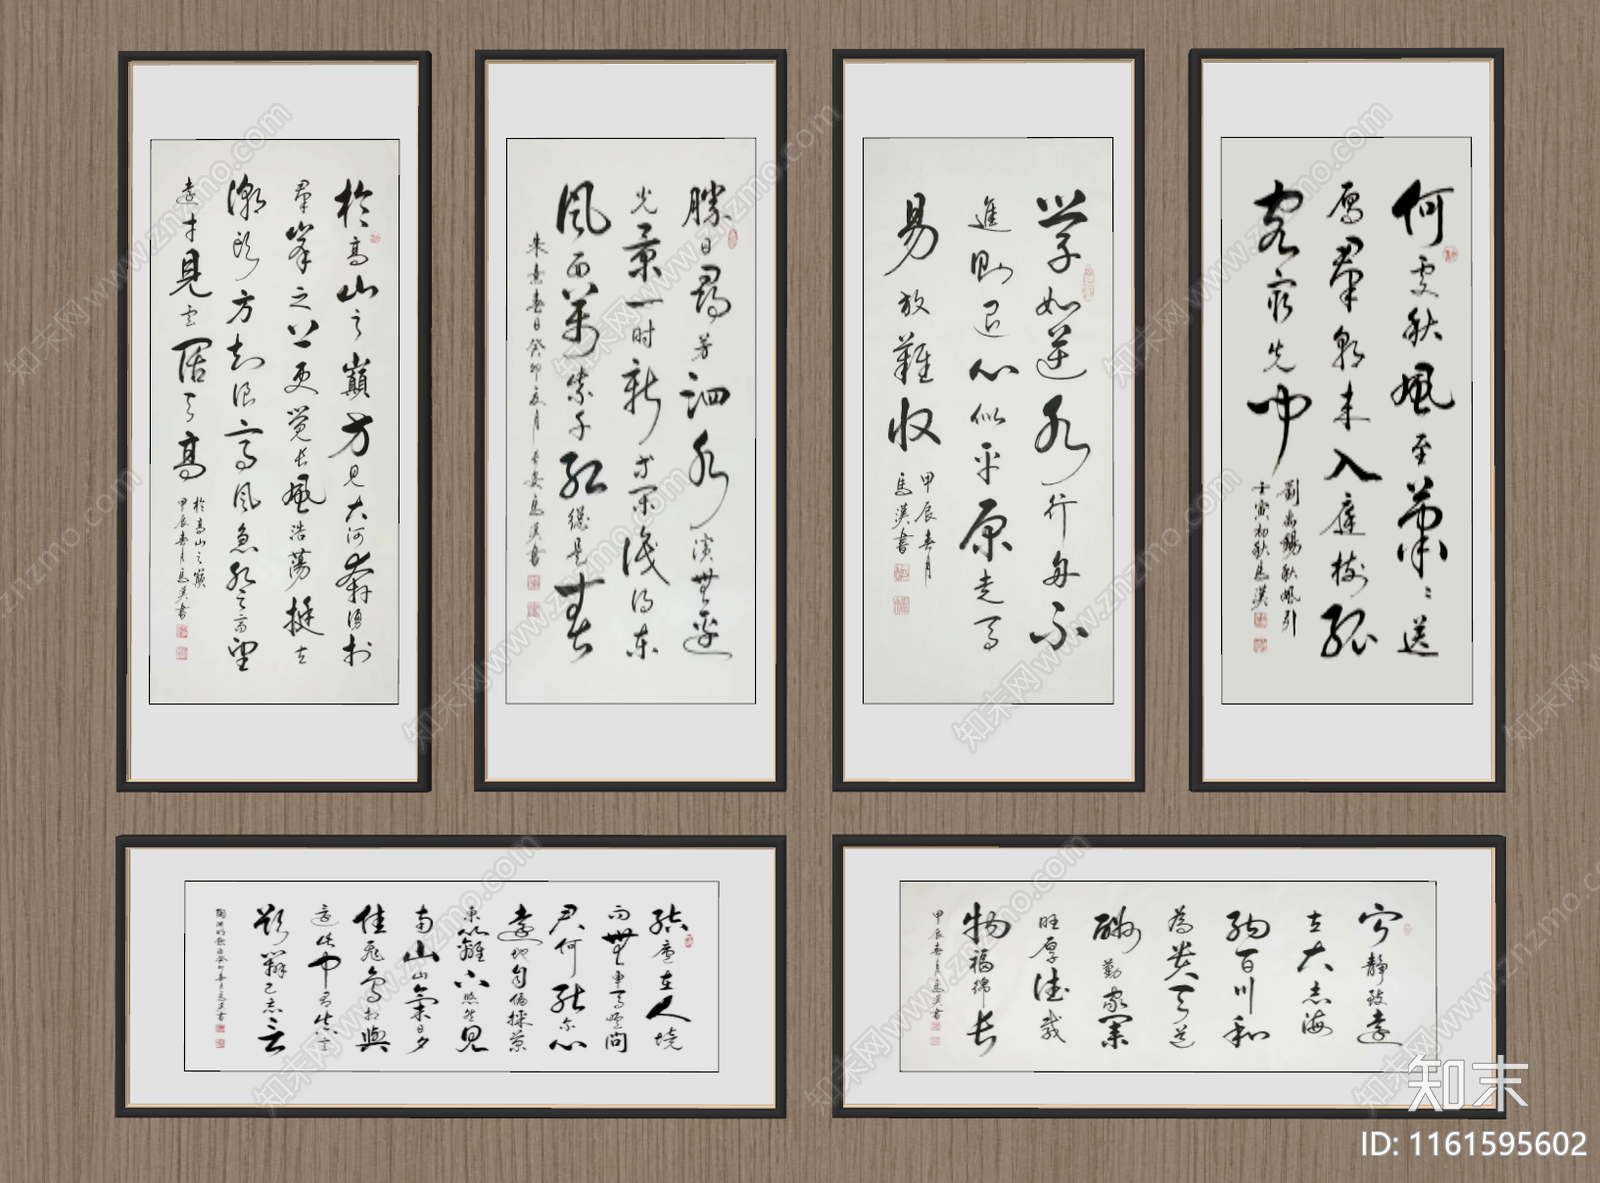 於高山之巔方見大河奔湧於
群峯之上更覺長風浩蕩挺立
潮头方知浪高風急登高望
遠才見雲闊天高
於高山之巔
甲辰春月馬漢書
勝日尋芳泗水濱無邊
光景一时新等閑識得東
風面萬紫千紅總是春
朱熹春日癸卯夏月於長安馬漢書
学如逆水行舟不
進則退心似平原走馬
易放難收
甲辰春月
馬漢書
何處秋風至蕭〻送
雁群朝来入庭樹孤
客最先聞
劉禹錫秋風引
壬寅初秋馬漢
結廬在人境
而無車馬喧問
君何能爾心
遠地自偏採菊
東籬下悠然見
南山山氣日夕
佳飛鳥相與
還此中有真意
欲辨已忘言
陶淵明飲酒癸卯春月馬漢書
寧静致遠
立大志海
納百川和
為貴天道
酬勤家業
旺厚德載
物福綿長
甲辰春月馬漢書
知末
ID: 1161595602
知末网www.znzmo.com